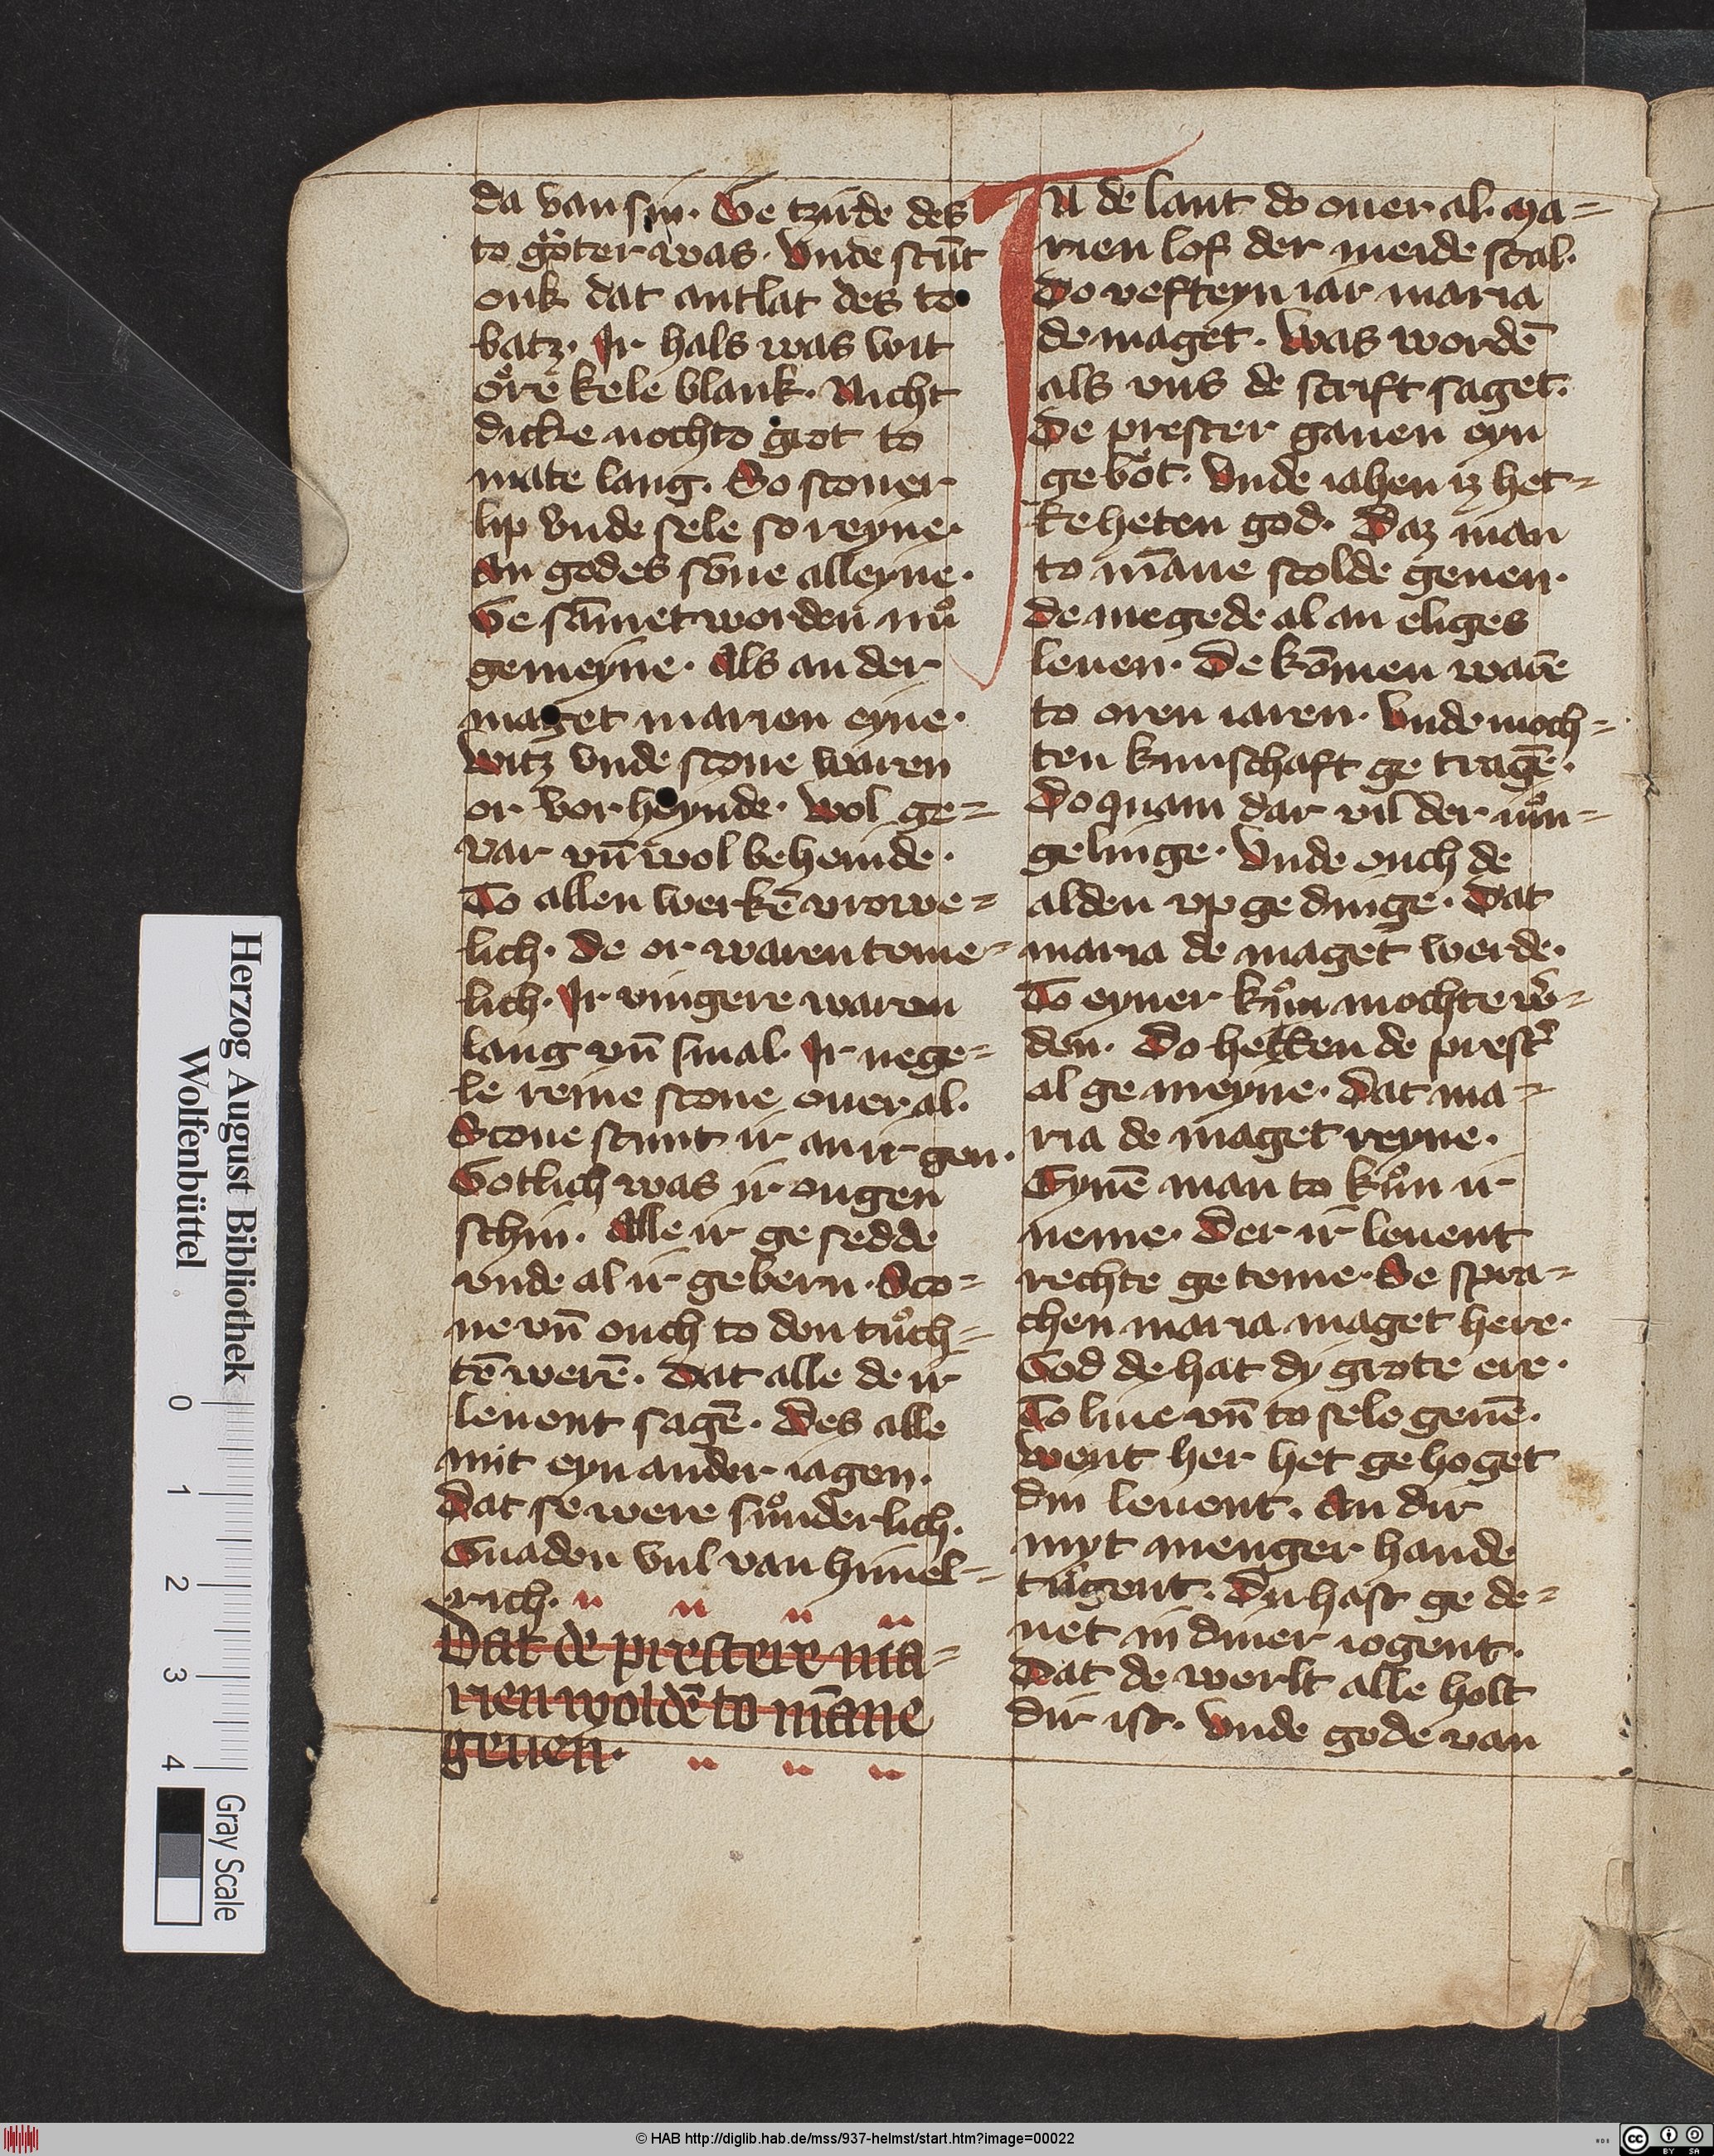 da van sin. Ge tzůde des
to gǒter was. Vnde stůt
ouk dat antlat des to
batz. Ir hals was wit
ore kele blank. Nicht
dicke noch to grot to
mate lang. So scouer
lip vnde sele so reyne.
An godes sone alleyne.
Ge sāmet worden nuͦ
gemeyne. Als an der
maget marien eyne.
witz vnde scone waren
or vor heynde. wol ge=
var vn̄ wol behemde.
To allen werkē vrowe=
lich. De or waren teme=
lich. Ir vingere waren
lang vn̄ smal. Ir nege=
le reine scone ouer al.
Scone stunt ir an ir gen.
Gotlich was ir ougen
schin. Alle ir ge sedde
vnde al ir gebern. Sco=
ne vn̄ ouch to den tuͦch=
tē werē. Dat alle de ir
leuent sagē. Des alle
mit eyn ander iagen.
Dat se were suͦnderlich.
Gnaden vul van himel=
rich.
Dat de prestere ma=
rien woldē to māne
geuen.
In de lant do ouer al. Ma=
rien lof der meide scal.
Do vefteyn iar maria
de maget. Was wordē
als vns de scrift saget.
De prester gauen eyn
gebot. Vnde iahen iz het=
ke heten god. Daz man
to māne scolde geuen.
de megede al an eliges
leuen. De komen warē
to oren iaren. Vnde moch=
ten kunschaft ge tragē.
Do quam dar vil der iuͦn=
gelinge. Vnde ouch de
alden vp ge dinge. Dat
maria de maget werde.
To eyner kuͦnn mochte w̄=
den. Do hetten de prest̄
al ge meyne. Dat ma=
ria de maget reyne.
Eynē man to kuͦnn ir
neme. Der ir leuent
rechte ge teme. Se spra=
chen maria maget here.
God de hat dy grote ere.
To liue vn̄ to sele geuē.
went her het ge hoget
din leuent. An dir
myt menger hande
tugent. Du hast ge de=
net in diner iogent.
Dat de werlt alle holt
dir ist. Vnde gode van
Herzog August Bibliothek
Wolfenbüttel
0 1 2 3 4
Gray Scale
© HAB http://diglib.hab.de/mss/937-helmst/start.htm?image=00022